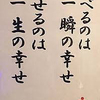 べるのは
一瞬の幸せ
せるのは
一生の幸せ